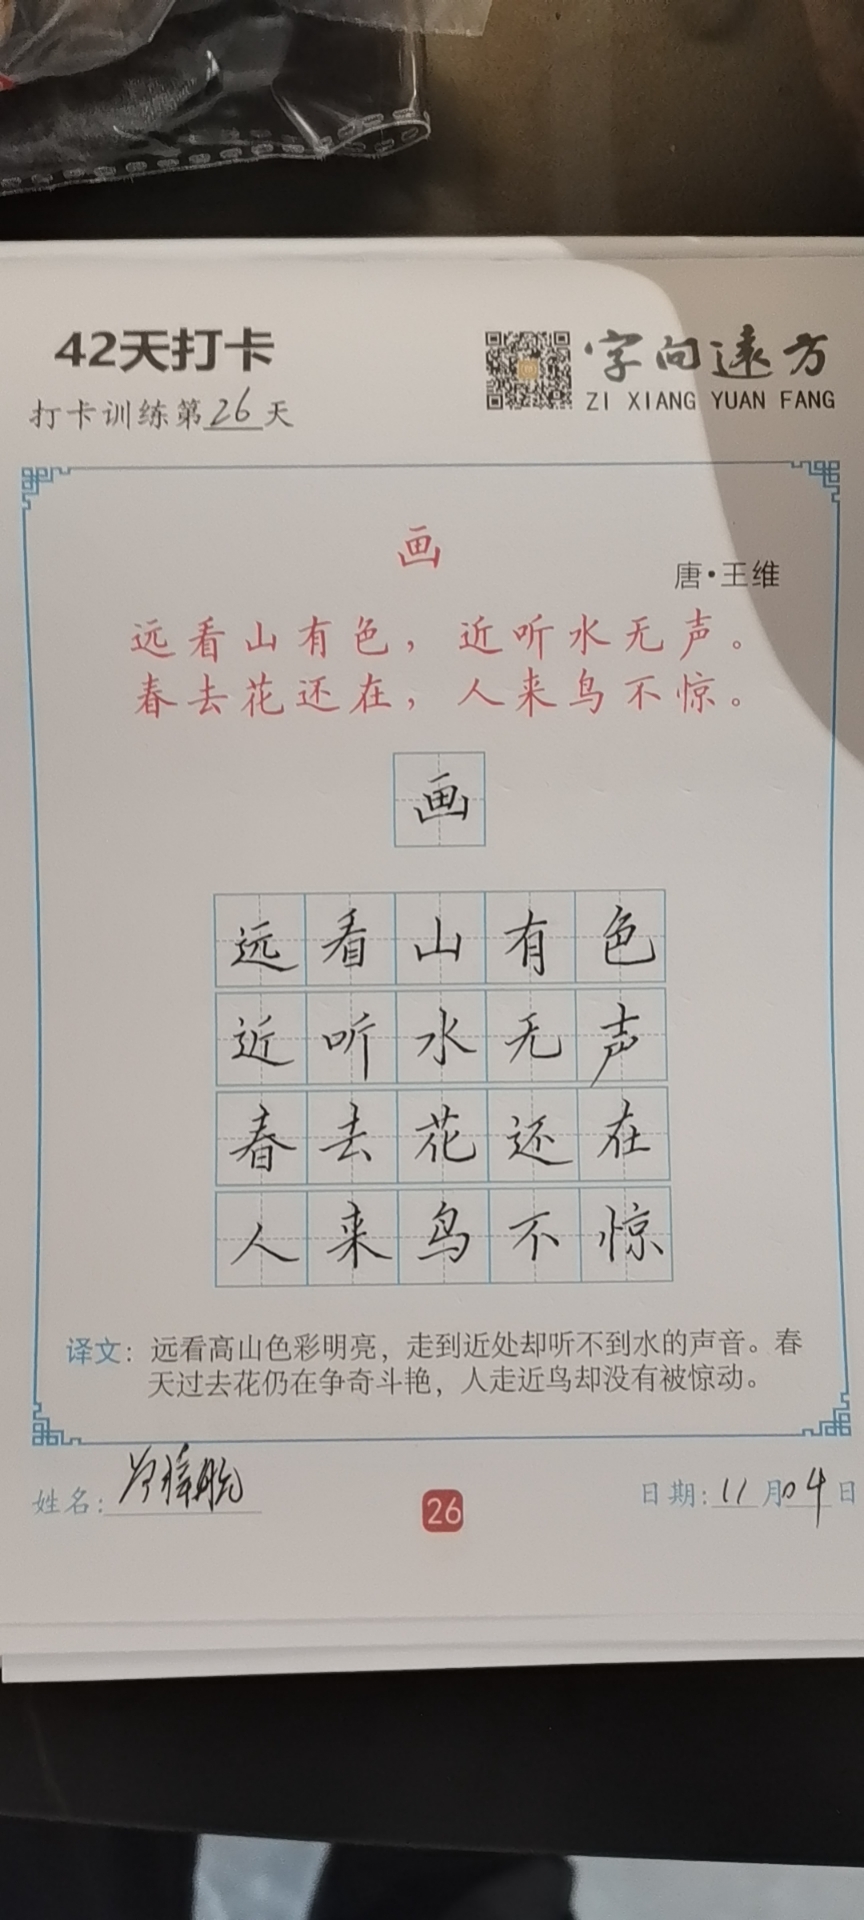 42天打卡
字向远方
ZI XIANG YUAN FANG
打卡训练第26天
画
唐·王维
远看山有色，近听水无声。
春去花还在，人来鸟不惊。
画
远看山有色
近听水无声
春去花还在
人来鸟不惊
译文：远看高山色彩明亮，走到近处却听不到水的声音。春
天过去花仍在争奇斗艳，人走近鸟却没有被惊动。
姓名：
26
日期：11月04日